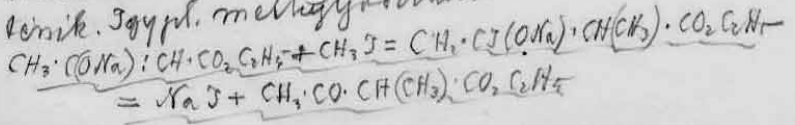 történik. Így pl.
CH₃·C(ONa):CH·CO₂C₂H₅ + CH₃J = CH₃·CJ(ONa)·CH(CH₃)·CO₂C₂H₅
= NaJ + CH₃·CO·CH(CH₃)·CO₂C₂H₅